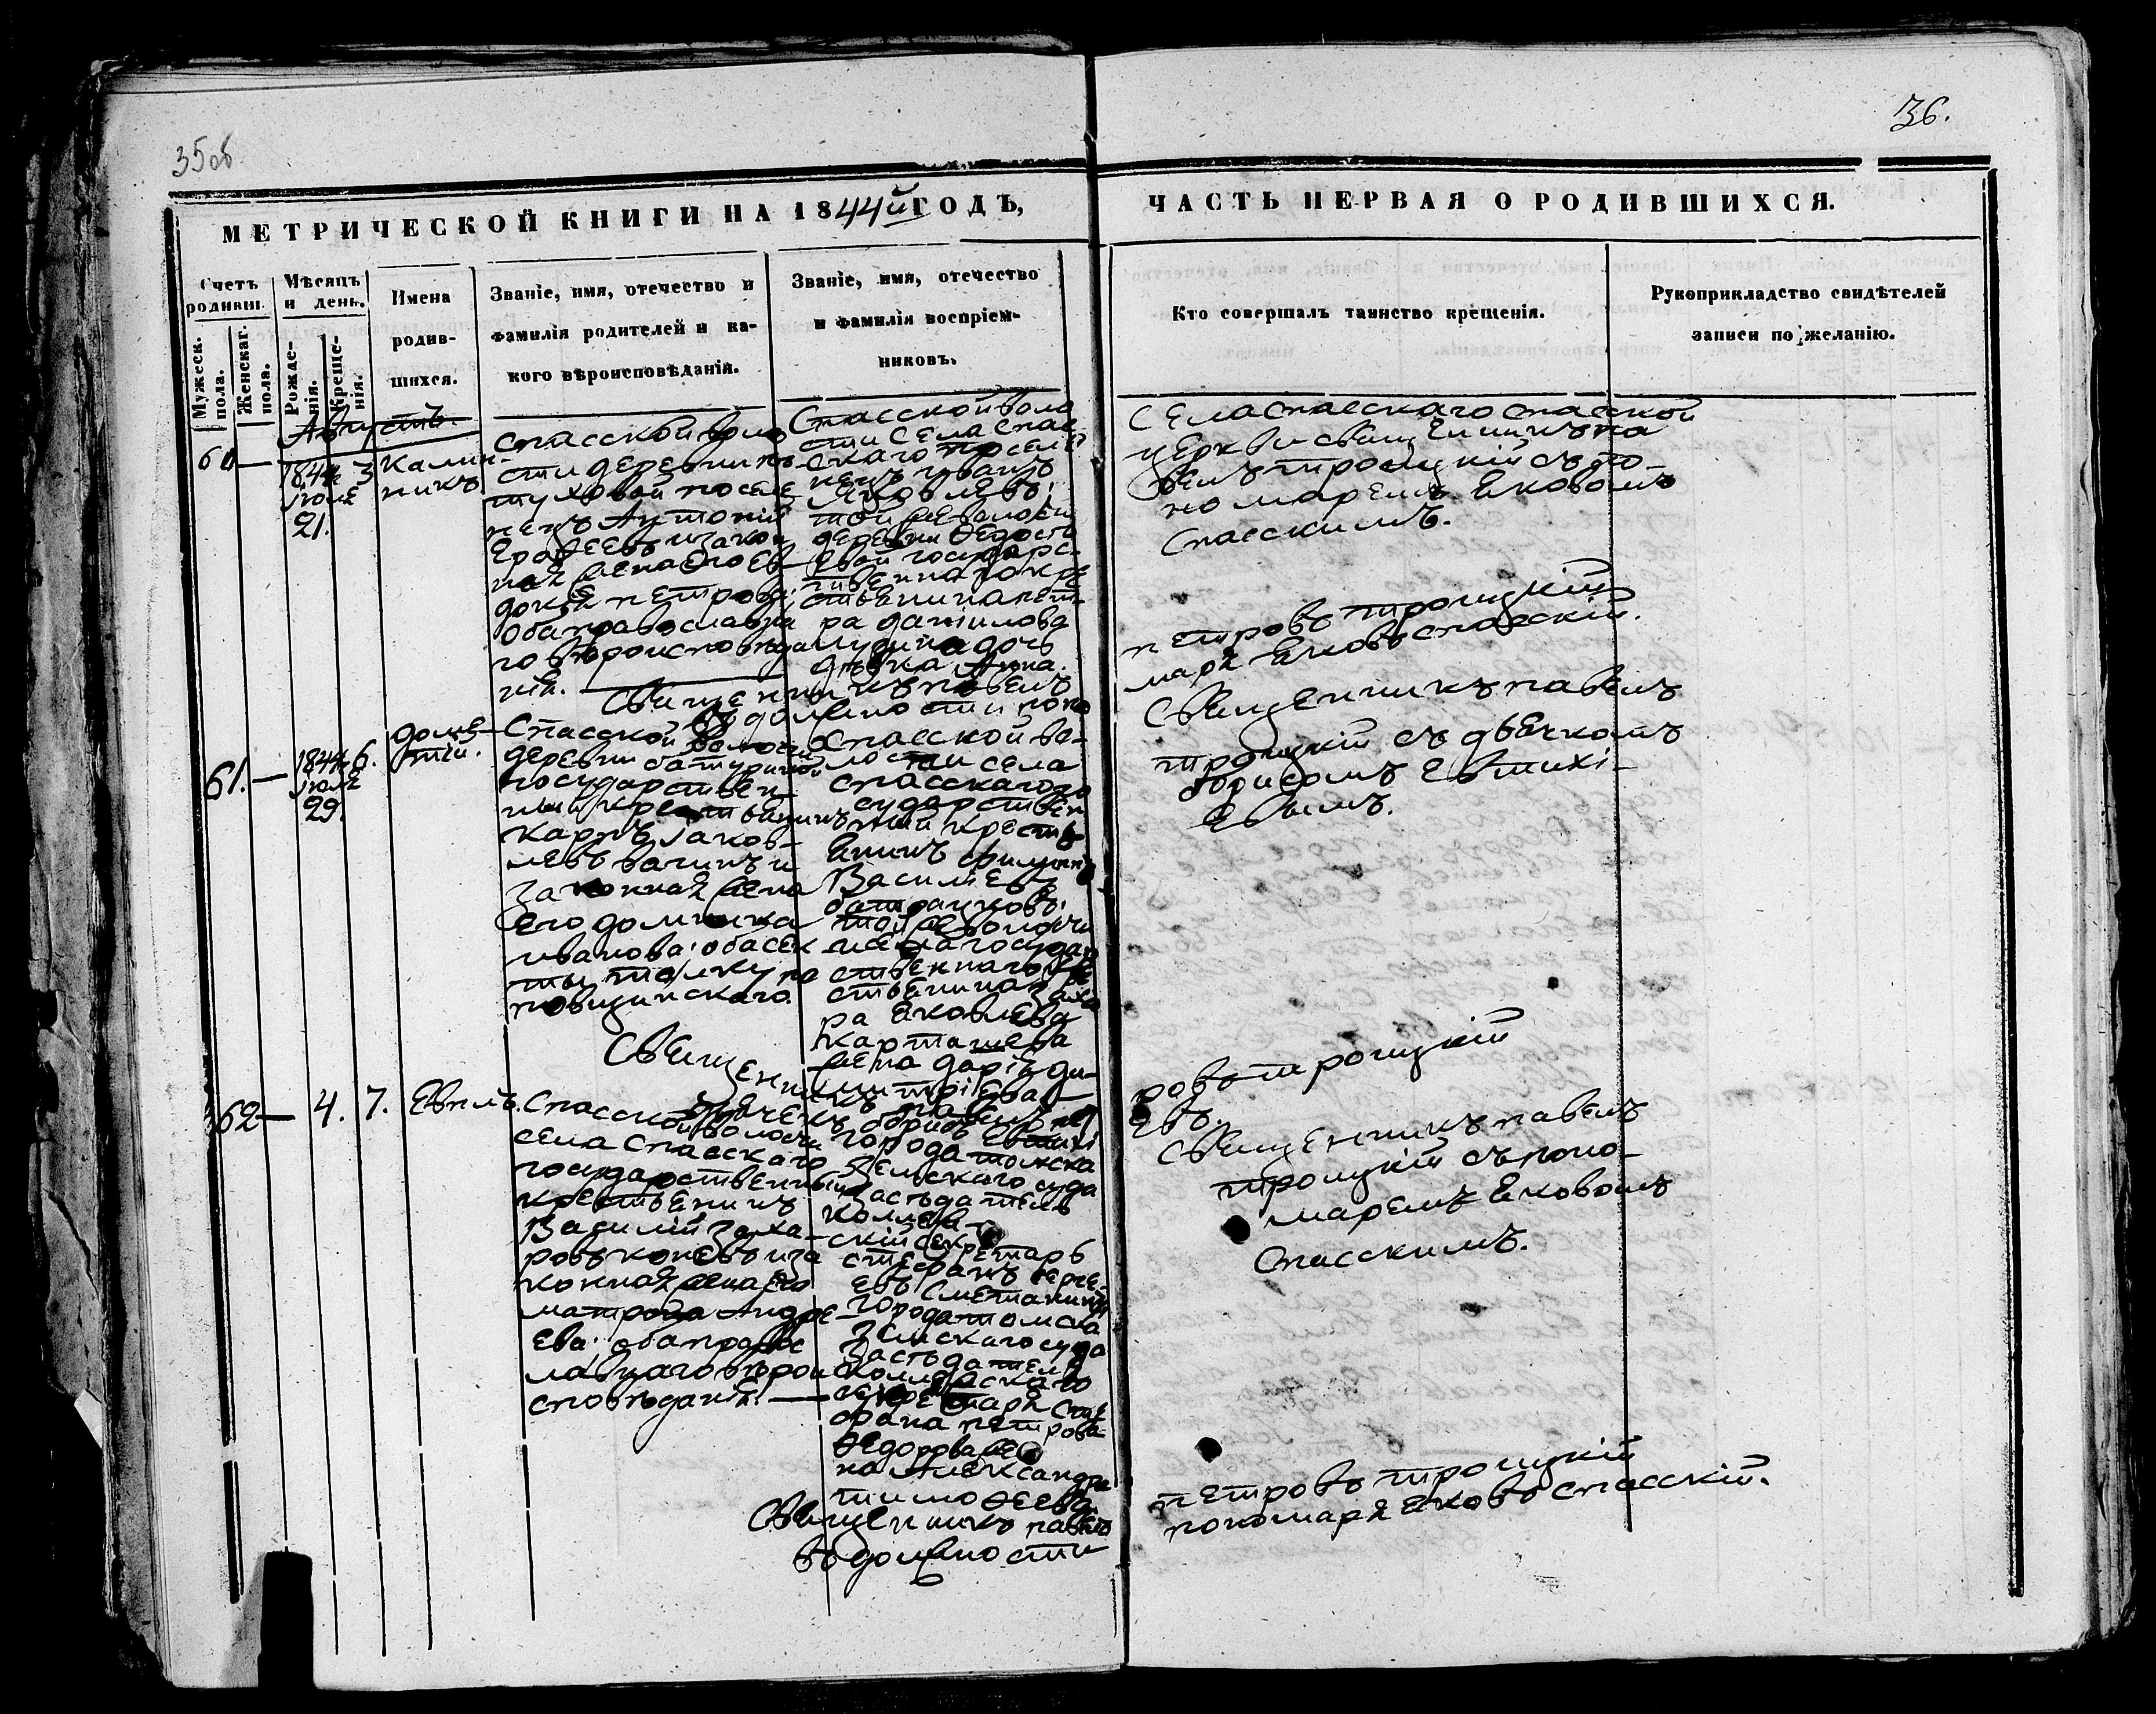 35 об.
36.
МЕТРИЧЕСКОЙ КНИГИ НА 1844й ГОДЪ,
ЧАСТЬ ПЕРВАЯ О РОДИВШИХСЯ.
Счетъ родивш.
Мужеск. пола.
Женскаг. пола.
Мѣсяцъ и день.
Рожде-
нія.
Креще-
нія.
Имена
родив-
шихся.
Званіе, имя, отечество и
фамилія родителей и ка-
кого вѣроисповѣданія.
Званіе, имя, отечество
и фамилія воспріем-
никовъ.
Кто совершалъ таинство крещенія.
Рукоприкладство свидѣтелей
записи по желанію.
Августъ.
60 —
1844
июля
21.
3
Калин-
никъ
Спасской воло
сти деревни
поселе
нецъ Антоній
Ерофеевъ и закон
ная жена его Ев-
докія Петрова;
оба православна
го вѣроисповѣда
нія.
Спасской воло
сти села Спас
скаго поселе
нецъ Иванъ
Яковлевъ;
той же волости
деревни Федосе
евой государс-
твеннаго кре
стьянина Пет-
ра Данилова
дочь
дѣвка Анна.
Села Спасскаго Спасской
церкви священникъ Па
велъ Троицкій съ по-
номаремъ Яковомъ
Спасскимъ.
Священникъ Павелъ
Петровъ Троицкій
въ должности поно
марь Яковъ Спасскій.
61. —
1844
июля
29.
6.
Домен-
тій.
Спасской волости
деревни Батуриной
государствен-
ный крестьянинъ
Карпъ Яков-
левъ и
законная жена
его Домника
Иванова; оба сек
ты толку по
повщинскаго.
Спасской во-
лости села
Спасскаго го
сударствен
ный кресть
янинъ Филиппъ
Василіевъ
той же волости
жена государ
ственнаго кре
стьянина Заха
ра Яковлева
Карташева
жена Дарія Ди-
митріева
Священникъ Павелъ
Троицкій съ дьячкомъ
Борисомъ Евтихі-
евымъ.
Священникъ Павелъ Пет
ровъ Троицкій
дьячекъ Борисъ Евтихі
евъ.
62 —
4.
7.
Евплъ.
Спасской волости
села Спасскаго
государственный
крестьянинъ
Василій Заха-
ровъ Коневъ и за
конная жена его
Матрона Андре-
ева; оба правос
лавнаго вѣрои
сповѣданія. —
города Томска
земскаго суда
засѣдатель
коллеж-
скій секретарь
Стефанъ Серге-
евъ Сметанинъ
города Томска
земскаго суда
засѣдателя
коллежскаго
секретаря Сте
фана Петрова
Федорова же
на Александра
Тимофеева
Священникъ Павелъ
Троицкій съ поно-
маремъ Яковомъ
Спасскимъ.
Священникъ Павелъ
Петровъ Троицкій
въ должности
пономаря Яковъ Спасскій.